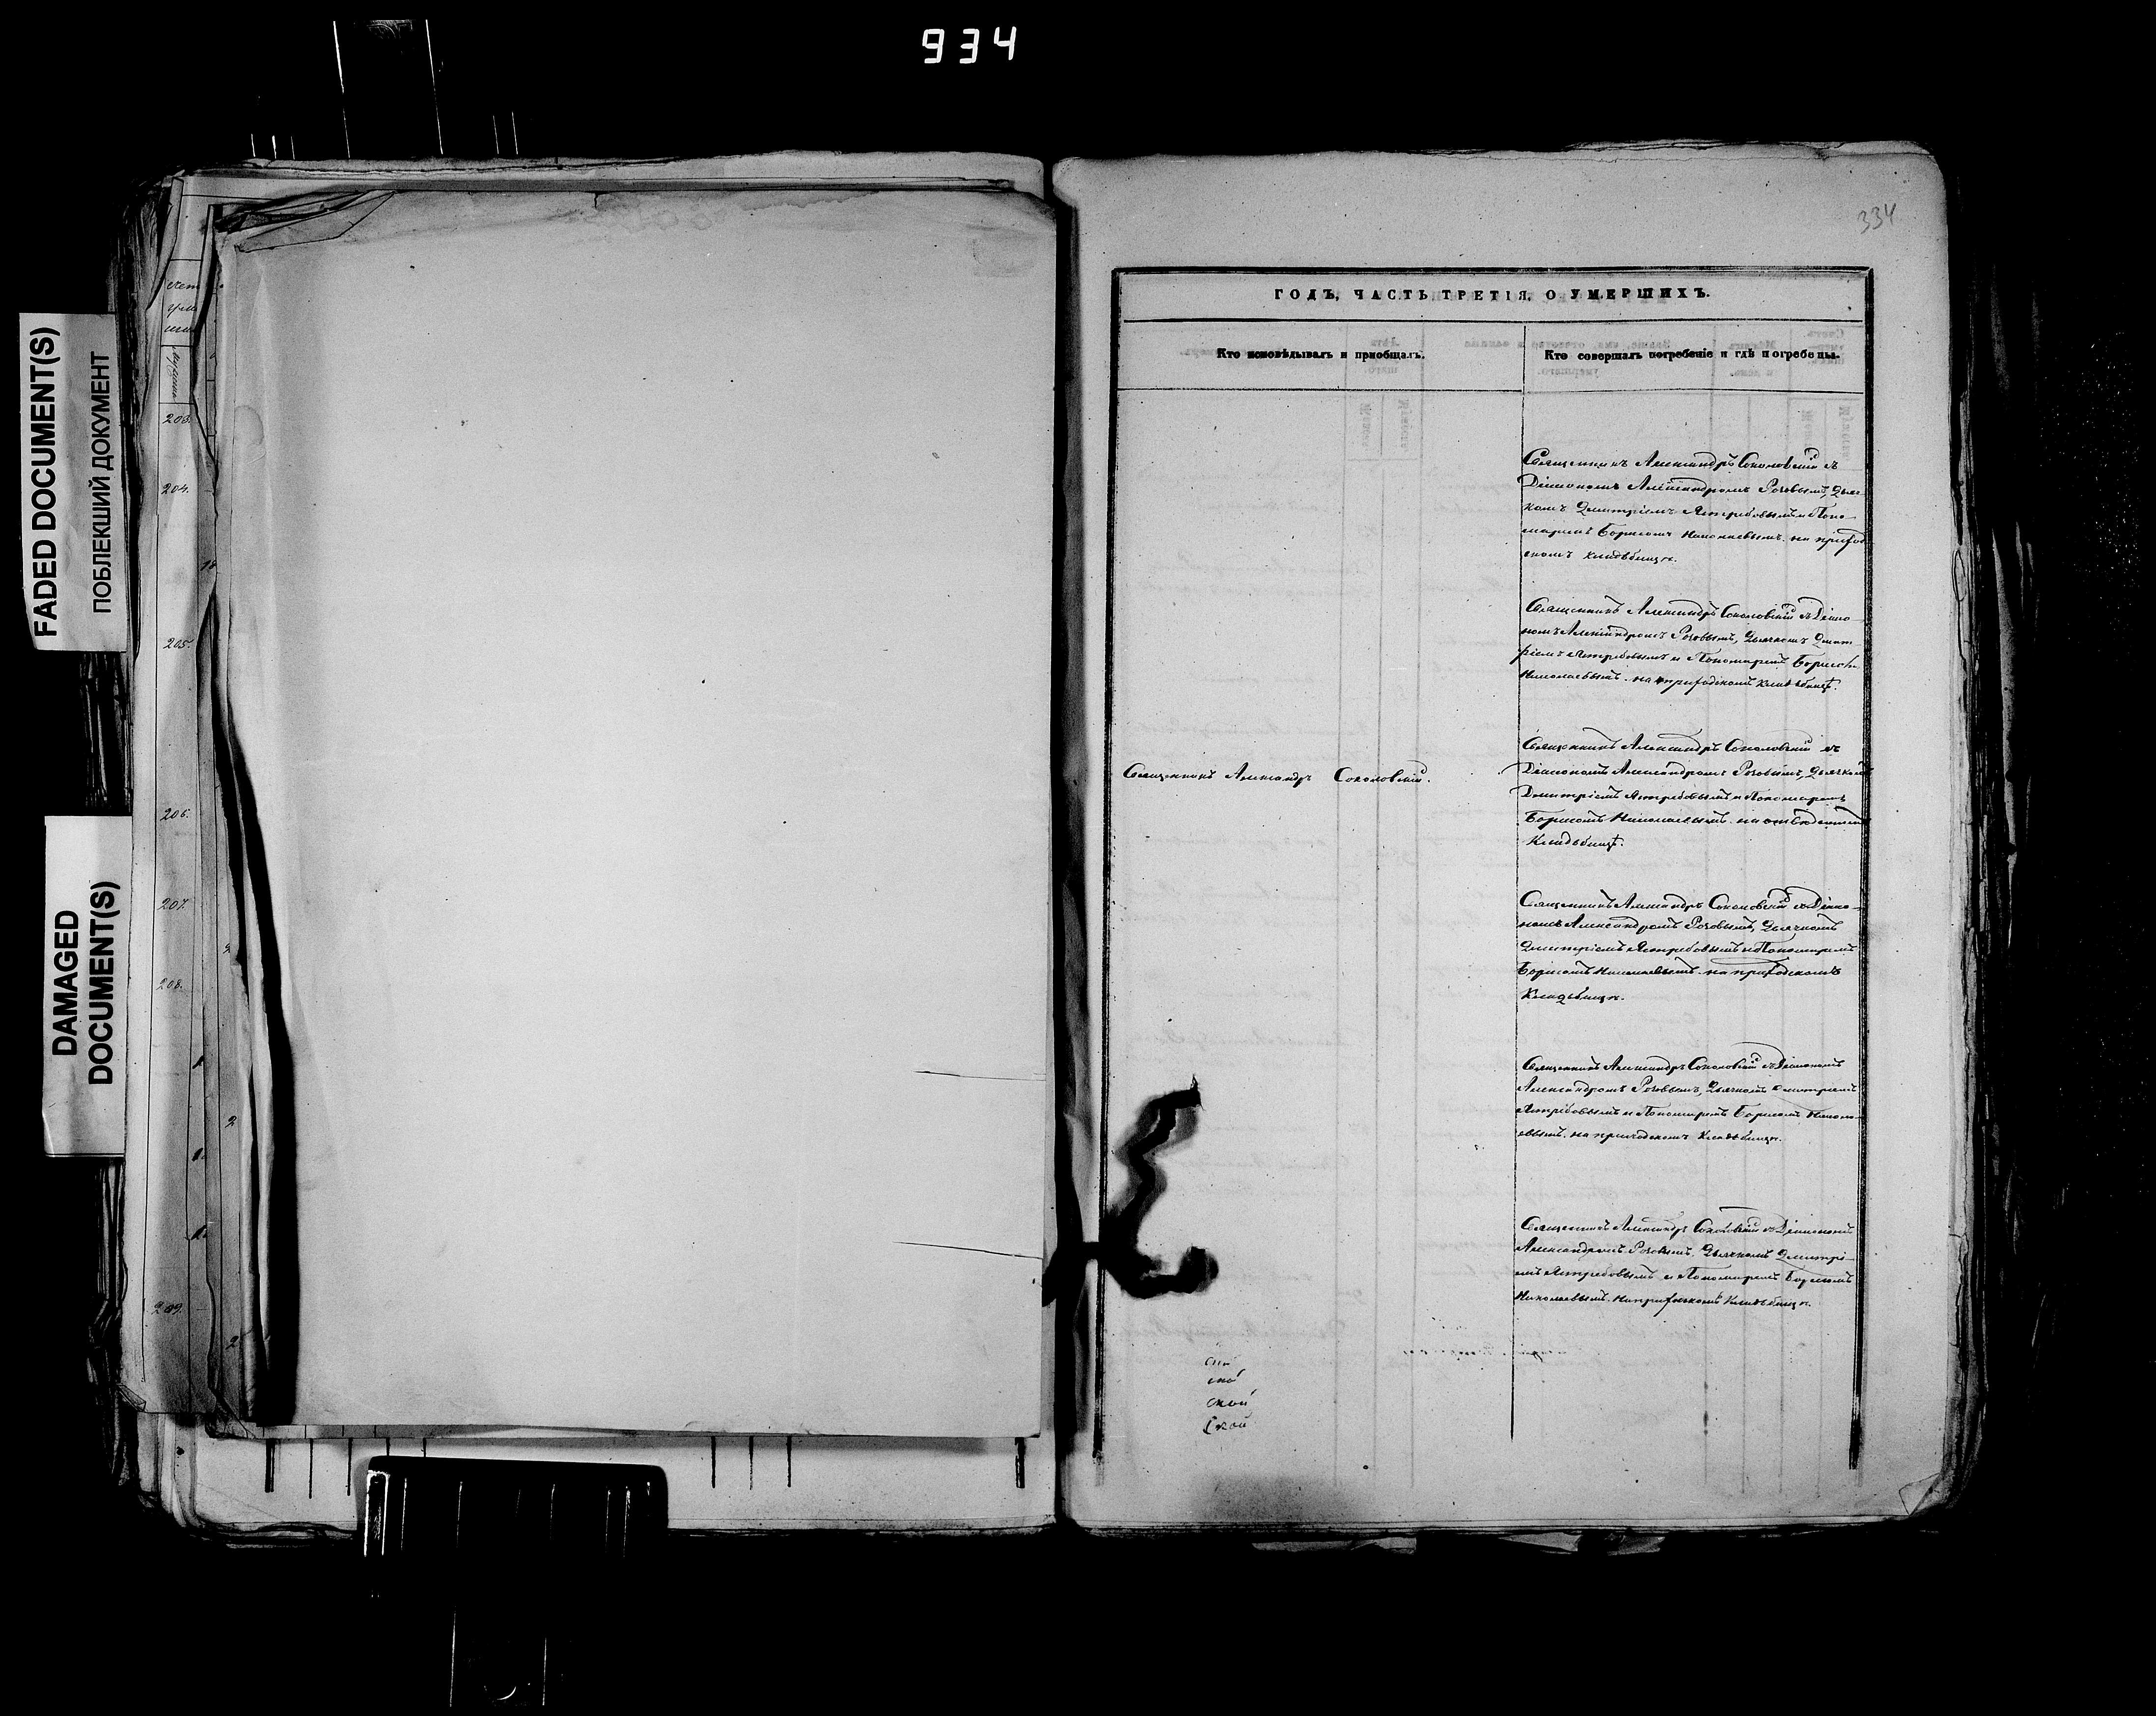 934
FADED DOCUMENT(S)
ПОБЛЕКШИЙ ДОКУМЕНТ
DAMAGED
DOCUMENT(S)
203.
204.
205.
206.
207.
208.
209.
334
ГОДЪ, ЧАСТЬ ТРЕТІЯ, О УМЕРШИХЪ.
Кто исповѣдывалъ и пріобщалъ.
Кто совершалъ погребеніе и гдѣ погребены.
Священникъ Александръ Соколовскій съ
Діакономъ Александромъ Розовымъ, Дьяч-
комъ Димитріемъ Ястребовымъ и Поно-
маремъ Борисомъ Николаевымъ. на приход
скомъ кладбищѣ.
Священникъ Александръ Соколовскій съ Діако-
номъ Александромъ Розовымъ, Дьячкомъ Димит
ріемъ Ястребовымъ и Пономаремъ Борисомъ
Николаевымъ. на приходскомъ кладбищѣ.
Священникъ Александръ Соколовскій.
Священникъ Александръ Соколовскій съ
Діакономъ Александромъ Розовымъ, Дьячкомъ
Димитріемъ Ястребовымъ и Пономаремъ
Борисомъ Николаевымъ. на
Кладбищѣ.
Священникъ Александръ Соколовскій съ Діако-
номъ Александромъ Розовымъ, Дьячкомъ
Димитріемъ Ястребовымъ и Пономаремъ
Борисомъ Николаевымъ. на приходскомъ
Кладбищѣ.
Священникъ Александръ Соколовскій съ Діакономъ
Александромъ Розовымъ, Дьячкомъ Димитріемъ
Ястребовымъ и Пономаремъ Борисомъ Никола
евымъ. на приходскомъ Кладбищѣ.
Священникъ Александръ Соколовскій съ Діакономъ
Александромъ Розовымъ, Дьячкомъ Димитрі-
емъ Ястребовымъ и Пономаремъ Борисомъ
Николаевымъ. на приходскомъ Кладбищѣ.
ской
ской